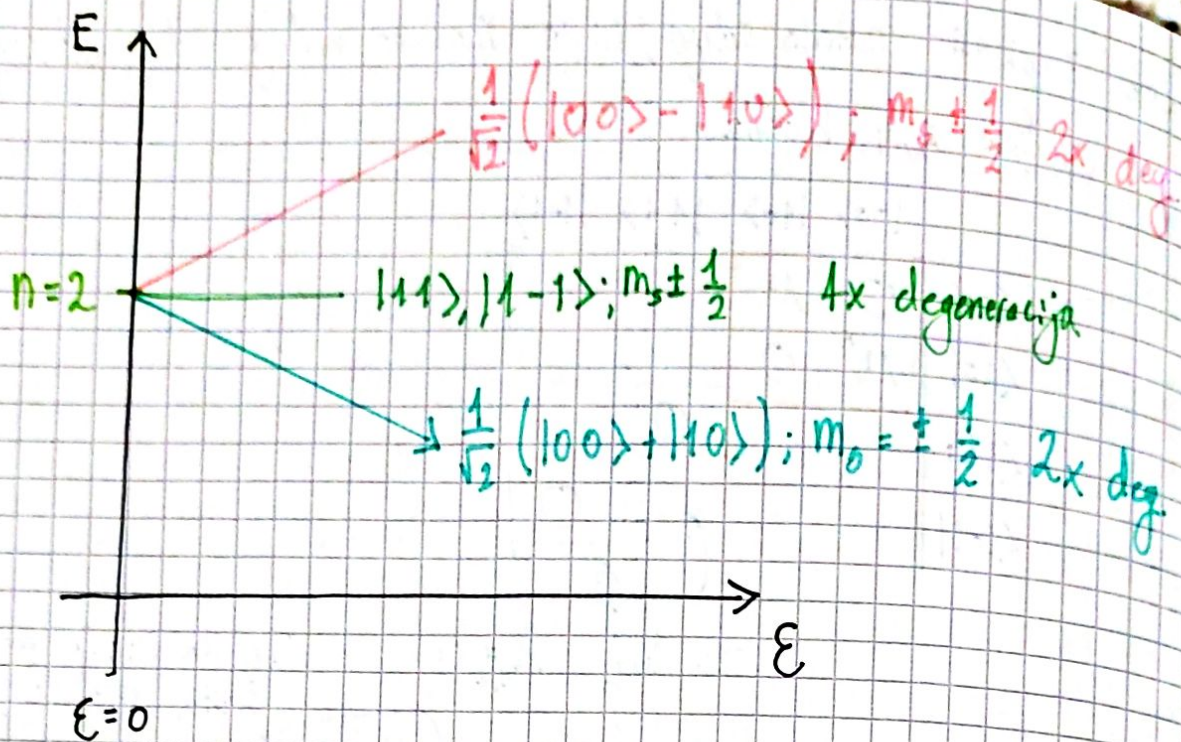 E
1/√2 (|00⟩-|10⟩); mₛ ± 1/2 2x deg
n=2 |11⟩,|1-1⟩; mₛ± 1/2 4x degeneracija
1/√2 (|00⟩+|10⟩); mₛ = ± 1/2 2x deg.
ε
ε=0